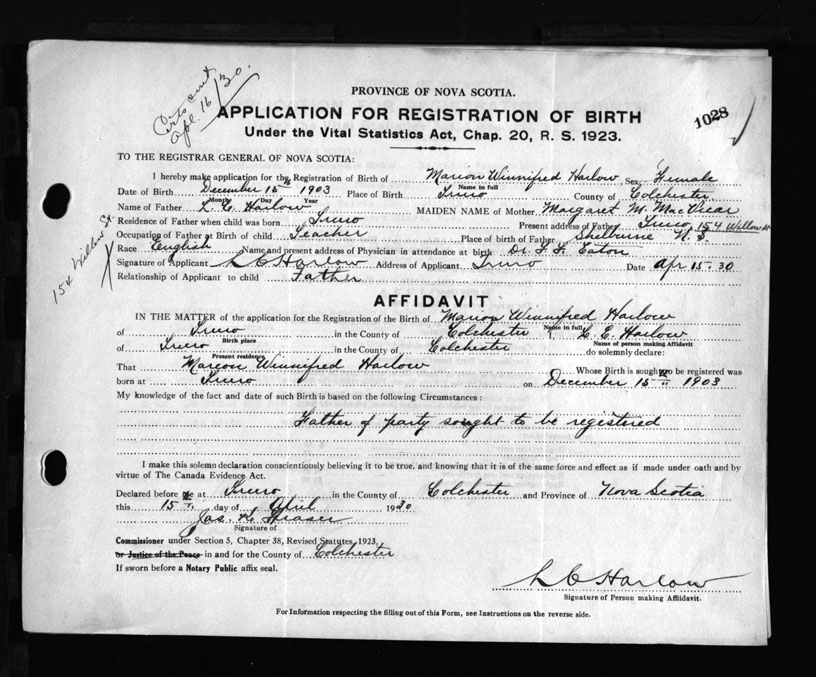 Certs sent
Apl. 16/30.
1028
PROVINCE OF NOVA SCOTIA.
APPLICATION FOR REGISTRATION OF BIRTH
Under the Vital Statistics Act, Chap. 20, R. S. 1923.
TO THE REGISTRAR GENERAL OF NOVA SCOTIA:
I hereby make application for the Registration of Birth of Marion Winnifred Harlow Sex Female
Name in full
Date of Birth December 15th 1903 Place of Birth Truro County of Colchester
Month Day Year
Name of Father L. C. Harlow MAIDEN NAME of Mother Margaret M. MacVicar
Residence of Father when child was born Truro Present address of Father Truro, 154 Willow St
Occupation of Father at Birth of child Teacher Place of birth of Father Shelburne N. S.
Race English Name and present address of Physician in attendance at birth Dr. F. F. Eaton
Signature of Applicant L C Harlow Address of Applicant Truro Date Apr 15. 30
Relationship of Applicant to child Father
154 Willow St.
AFFIDAVIT
IN THE MATTER of the application for the Registration of the Birth of Marion Winnifred Harlow
Name in full
of Truro in the County of Colchester I, L. C. Harlow
Birth place Name of person making Affidavit
of Truro in the County of Colchester do solemnly declare:
Present residence
That Marion Winnifred Harlow Whose Birth is sought to be registered was
born at Truro on December 15th 1903
My knowledge of the fact and date of such Birth is based on the following Circumstances:
Father of party sought to be registered
I make this solemn declaration conscientiously believing it to be true, and knowing that it is of the same force and effect as if made under oath and by
virtue of The Canada Evidence Act.
Declared before me at Truro in the County of Colchester and Province of Nova Scotia
this 15th day of April 1930
Jas. Fraser
Signature of
Commissioner under Section 5, Chapter 38, Revised Statutes, 1923,
or Justice of the Peace in and for the County of Colchester
If sworn before a Notary Public affix seal.
L C Harlow
Signature of Person making Affidavit.
For Information respecting the filling out of this Form, see Instructions on the reverse side.